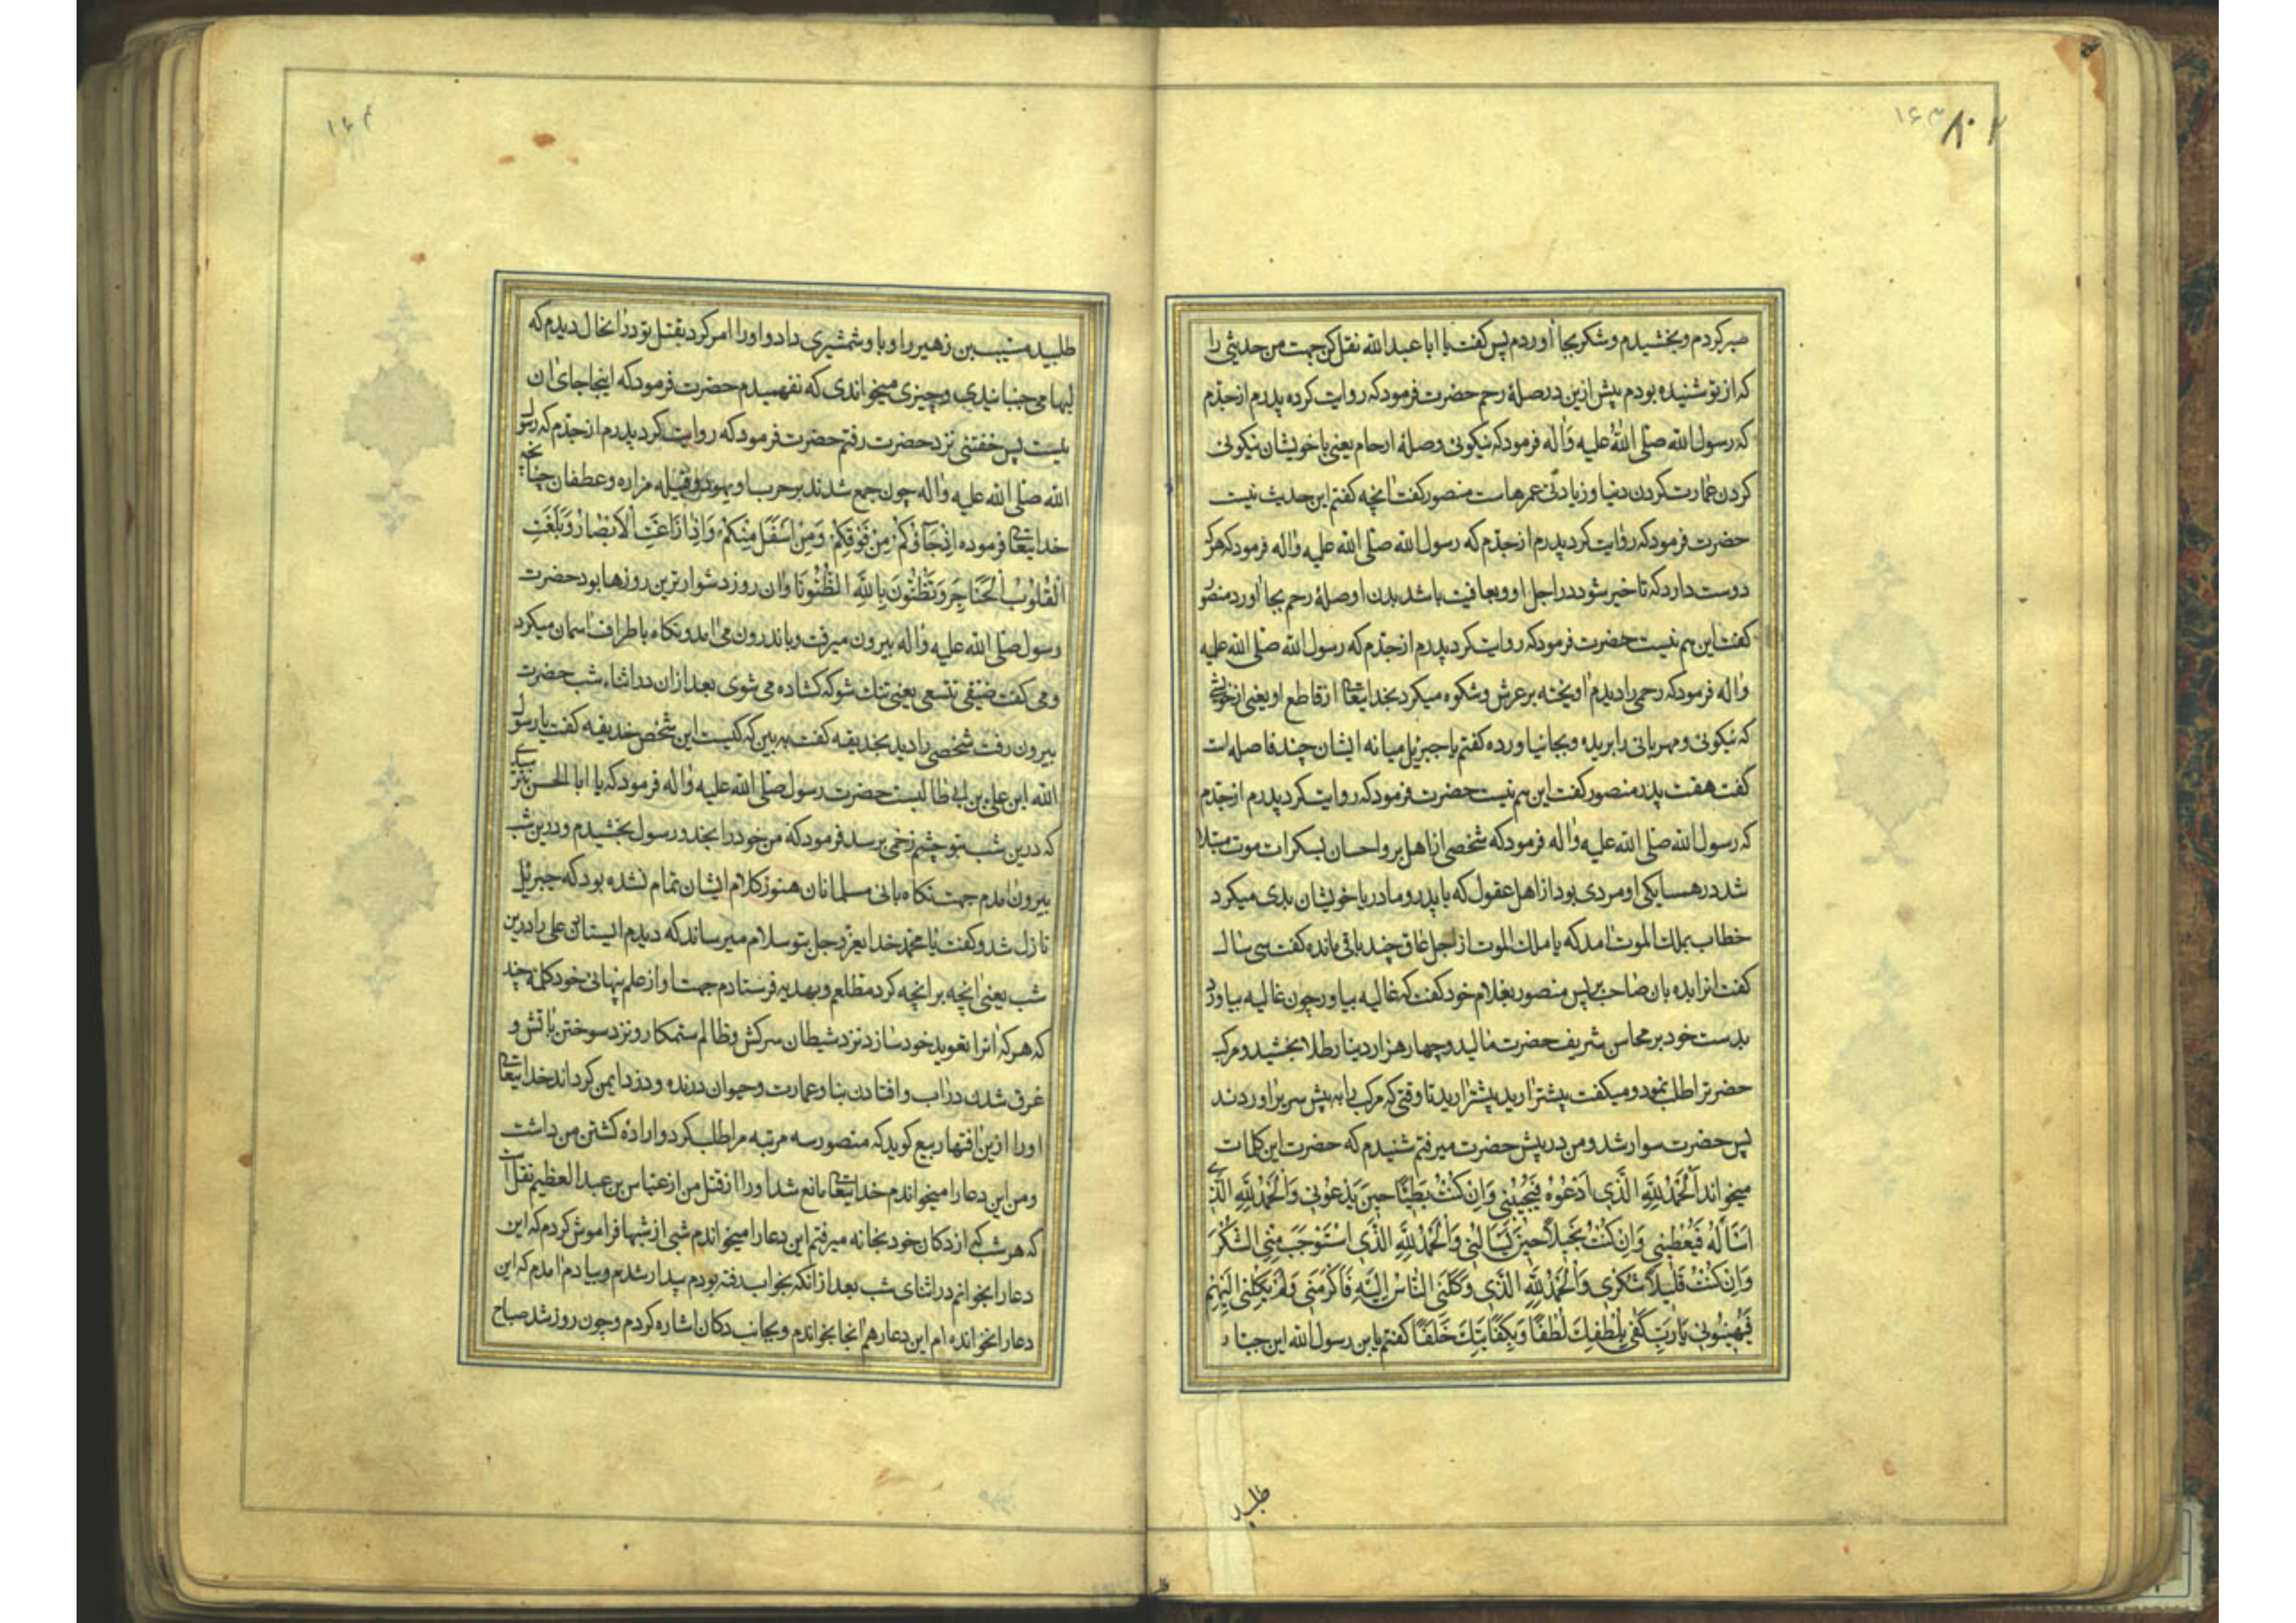 ۱۶۳
۸۰۲
صبر کردم و بخشیدم و شکر بجا آوردم پس کفت یا ابا عبدالله نقل کن جهت من حدیثی را
که از تو شنیده بودم پیش ازین در صلهٔ رحم حضرت فرمود که روایت کرده پدرم از جدّم
که رسول الله صلّی اللهُ علیه وَاله فرمود که نیکوئی وصلهٔ ارحام یعنی با خویشان نیکوئی
کردن عمارت کردن دنیا و زیادتی عمرهاست منصور کفت انچه کفتم این حدیث نیست
حضرت فرمود که روایت کرد پدرم از جدّم که رسول الله صلّی الله علیه واله فرمود که هر که
دوست دارد که تاخیر شود در اجل او و بعافیت باشد بدن او صلهٔ رحم بجا آورد منصور
کفت این هم نیست حضرت فرمود که روایت کرد پدرم از جدّم که رسول الله صلّی الله علیه
واله فرمود که رحمی را دیدم آویخته بر عرش و شکوه میکرد بخدایتعالی از قاطع او یعنی از خویشی
که نیکوئی و مهربانی را بریده و بجا نیاورده کفتم یا جبرئیل میانه ایشان چند فاصله است
کفت هفت پدر منصور کفت این هم نیست حضرت فرمود که روایت کرد پدرم از جدّم
که رسول الله صلّی الله علیه واله فرمود که شخصی از اهل بر و احسان بسکرات موت مبتلا
شد در همسایکی او مردی بود از اهل عقوق که با پدر و مادر یا خویشان بدی میکرد
خطاب بملک الموت آمد که یا ملک الموت از اجل عاق چند باقی مانده کفت سی سال
کفت انرا بده بان صاحب بر پس منصور بغلام خود کفت که غالیه بیاور چون غالیه بیاورد
بدست خود بر محاسن شریف حضرت مالید و چهار هزار دینار طلا بخشید و مرکب
حضرترا طلب نمود و میکفت پیشتر آرید پیشتر آرید تا وقتی که مرکب را به پیش سریر آوردند
پس حضرت سوار شد و من در پیش حضرت میرفتم شنیدم که حضرت این کلمات
میخواند اَلْحَمْدُ لِلّٰهِ الَّذی اَدْعُوهُ فَیُجیبُنی وَاِنْ کُنْتُ بَطیئًا حینَ یَدْعُونی وَالْحَمْدُ لِلّٰهِ الَّذی
اَسْاَلُهُ فَیُعْطینی وَاِنْ کُنْتُ بَخیلًا حینَ یَسْاَلُنی وَالْحَمْدُ لِلّٰهِ الَّذی اسْتَوْجَبَ مِنِّی الشُّکْرَ
وَاِنْ کُنْتُ قَلیلًا شُکْری وَالْحَمْدُ لِلّٰهِ الَّذی وَکَلَنی النّاسُ اِلَیْهِ فَاَکْرَمَنی وَلَمْ یَکِلْنی اِلَیْهِمْ
فَیُهینُونی یارَبِّ کَفیٰ بِلُطْفِکَ لُطْفًا وَبِکِفایَتِکَ خَلَفًا کفتم یا بن رسول الله این جبّار
طلبید
۱۶۴
طلبید مسیّب بن زهیر را و باو شمشیری داد و اورا امر کرد بقتل تو درانحال دیدم که
لبها می جنبانیدی و چیزی میخواندی که نفهمیدم حضرت فرمود که اینجا جای آن
نیست پس خفتنی نزد حضرت رفتم حضرت فرمود که روایت کرد پدرم از جدّم که رسول
الله صلّی الله علیه واله چون جمع شدند بر حرب او یهود و قبیله فزاره و عطفان چنانچه
خدایتعالی فرموده اِذْ جَآؤُکُمْ مِنْ فَوْقِکُمْ وَمِنْ اَسْفَلَ مِنْکُمْ وَاِذْ زَاغَتِ الْاَبْصَارُ وَبَلَغَتِ
الْقُلُوبُ الْحَنَاجِرَ وَتَظُنُّونَ بِاللّٰهِ الظُّنُونَا وان روز دشوارترین روزها بود حضرت
رسول صلّی الله علیه واله بیرون میرفت و باندرون می آمد و نکاه باطراف آسمان میکرد
و می کفت ضیقی تتسعی یعنی تنک شو که کشاده می شوی بعد ازان در اثناء شب حضرت
بیرون رفت شخصی را دید بحذیفه کفت به بین که کیست این شخص حذیفه کفت یا رسول
الله این علی بن ابی طالبست حضرت رسول صلّی الله علیه واله فرمود که یا ابا الحسن نترسی
که درین شب بتو چشم زخمی برسد فرمود که من خود را بخدا و رسول بخشیدم و درین شب
بیرون آمدم جهت نکاه بانی مسلمانان هنوز کلام ایشان تمام نشده بود که جبرئیل
نازل شد و کفت یا محمّد خدایعزّ و جل بتو سلام میرساند که دیدم ایستادن علی را درین
شب یعنی انچه بر انچه کرد مطلعم و بهدیه فرستادم جهت او از علم پنهانی خود کلمهٔ چند
که هر که انرا تعویذ خود سازد نزد شیطان سرکش و ظالم ستمکار و نزد سوختن بآتش و
غرق شدن دراب و افتادن بنا و عمارت و حیوان درنده و دزد ایمن کرداند خدایتعالی
اورا ازین آفتها ربیع کوید که منصور سه مرتبه مرا طلب کرد و ارادهٔ کشتن من داشت
و من این دعا را میخواندم خدایتعالی مانع شد اورا از قتل من از عبّاس بن عبد العظیم نقل است
که هر شب که از دکان خود بخانه میرفتم این دعا را میخواندم شبی از شبها فراموش کردم که این
دعا را بخوانم در اثنای شب بعد ازانکه بخواب رفته بودم بیدار شدم و بیادم آمدم که این
دعا را نخوانده ام این دعا را هم آنجا بخواندم و بجانب دکان اشاره کردم و چون روز شد صباح